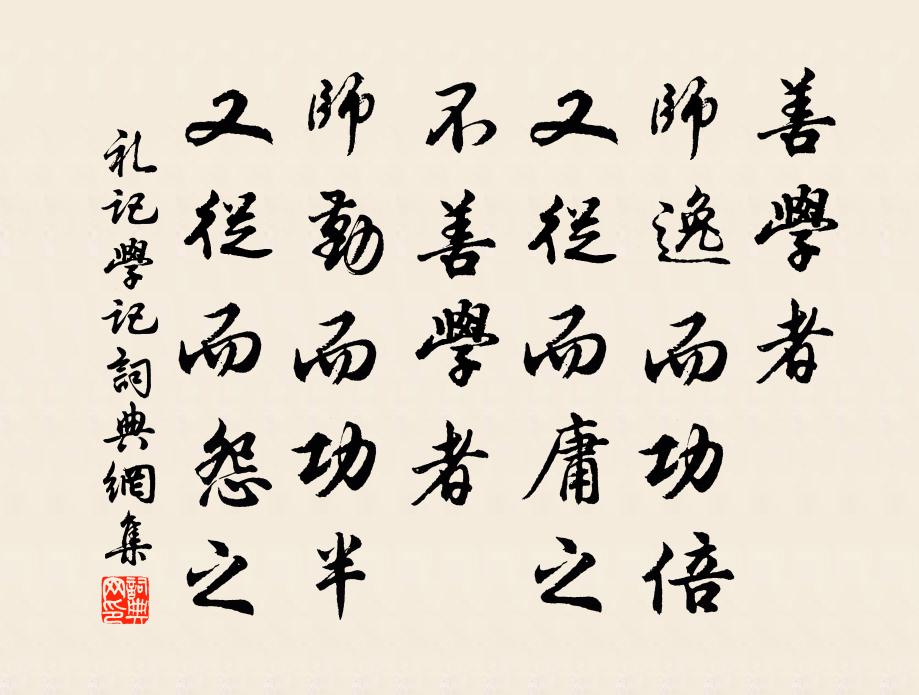 善學者
師逸而功倍
又從而庸之
不善學者
師勤而功半
又從而怨之
礼记學记詞典網集
詞典网印